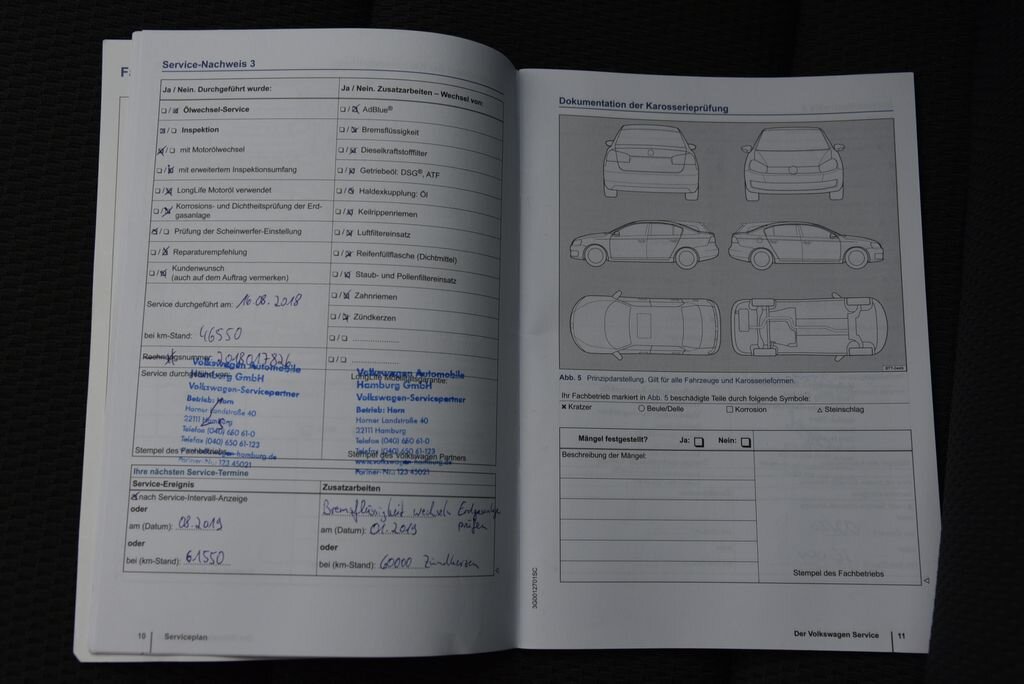 F
Service-Nachweis 3
Ja / Nein. Durchgeführt wurde:
Ölwechsel-Service
Inspektion
mit Motorölwechsel
mit erweitertem Inspektionsumfang
LongLife Motoröl verwendet
Korrosions- und Dichtheitsprüfung der Erd-
gasanlage
Prüfung der Scheinwerfer-Einstellung
Reparaturempfehlung
Kundenwunsch
(auch auf dem Auftrag vermerken)
Service durchgeführt am: 16.08.2018
bei km-Stand: 46550
Rechnungsnummer 2018017826
Service durchgeführt von:
Volkswagen Automobile
Hamburg GmbH
Volkswagen-Servicepartner
Betrieb: Horn
Horner Landstraße 40
22111 Hamburg
Telefon (040) 650 61-0
Telefax (040) 650 61-123
Partner-Nr.: 123 45021
Stempel des Fachbetriebs
Ja / Nein. Zusatzarbeiten – Wechsel von:
AdBlue®
Bremsflüssigkeit
Dieselkraftstofffilter
Getriebeöl: DSG®, ATF
Haldexkupplung: Öl
Keilrippenriemen
Luftfiltereinsatz
Reifenfüllflasche (Dichtmittel)
Staub- und Pollenfiltereinsatz
Zahnriemen
Zündkerzen
LongLife Mobilitätsgarantie:
Volkswagen Automobile
Hamburg GmbH
Volkswagen-Servicepartner
Betrieb: Horn
Horner Landstraße 40
22111 Hamburg
Telefon (040) 650 61-0
Telefax (040) 650 61-123
Partner-Nr.: 123 45021
Stempel des Volkswagen Partners
Ihre nächsten Service-Termine
Service-Ereignis
nach Service-Intervall-Anzeige
oder
am (Datum): 08.2019
oder
bei (km-Stand): 61550
Zusatzarbeiten
Bremsflüssigkeit wechseln Erdgasanlage
prüfen
am (Datum): 01.2019
oder
bei (km-Stand): 60000 Zündkerzen
10 Serviceplan
Dokumentation der Karosserieprüfung
Abb. 5 Prinzipdarstellung. Gilt für alle Fahrzeuge und Karosserieformen.
Ihr Fachbetrieb markiert in Abb. 5 beschädigte Teile durch folgende Symbole:
Kratzer Beule/Delle Korrosion Steinschlag
Mängel festgestellt? Ja: Nein:
Beschreibung der Mängel:
Stempel des Fachbetriebs
3G0012701SC
Der Volkswagen Service 11